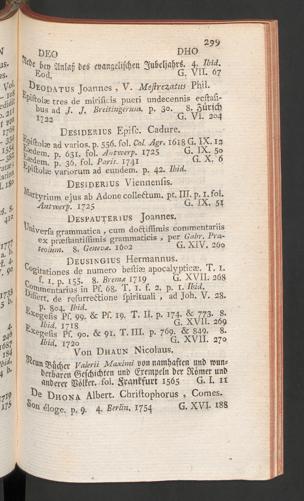 299
DEO DHO
Rede bey Anlaß des evangelischen Jubeljahrs. 4. Ibid.
Eod. G. VII. 67
DEODATUS Joannes, V. Mestrezatus Phil.
Epistolæ tres de mirificis pueri undecennis ecstasibus
ad J. J. Breitingerum. p. 30. 8. Zürich
1722 G. VI. 204
DESIDERIUS Episc. Cadurc.
Epistolæ ad varios. p. 556. fol. Col. Agr. 1618 G. IX. 12
Eædem. p. 631. fol. Antwerp. 1725 G. IX. 50
Eædem. p. 36. fol. Paris. 1741 G. X. 6
Epistolæ variorum ad eundem. p. 42. Ibid.
DESIDERIUS Viennensis.
Martyrium ejus ab Adone collectum. pt. III. p. 1. fol.
Antwerp. 1725 G. IX. 51
DESPAUTERIUS Joannes.
Universa grammatica, cum doctissimis commentariis
ex præstantissimis grammaticis, per Gabr. Prateolum.
8. Genevæ. 1602 G. XIV. 260
DEUSINGIUS Hermannus.
Cogitationes de numero bestiæ apocalypticæ. T. 1.
f. 1. p. 155. 8. Bremæ 1719 G. XVII. 268
Commentarius in Pf. 68. T. 1. f. 2. p. 1. Ibid.
Dissert. de resurrectione spirituali, ad Joh. V. 28.
p. 804. Ibid.
Exegesis Pf. 99. & Pf. 19. T. II. p. 174. & 773. 8.
Ibid. 1718 G. XVII. 269
Exegesis Pf. 90. & 91. T. III. p. 769. & 849. 8.
Ibid. 1720 G. XVII. 270
Von DHAUN Nicolaus.
Neun Bücher Valerii Maximi von namhaften und wunderbaren
Geschichten und Exempeln der Römer und
anderer Völker. fol. Frankfurt 1565 G. I. 11
De DHONA Albert. Christophorus, Comes.
Son éloge. p. 9. 4. Berlin. 1754 G. XVI. 188